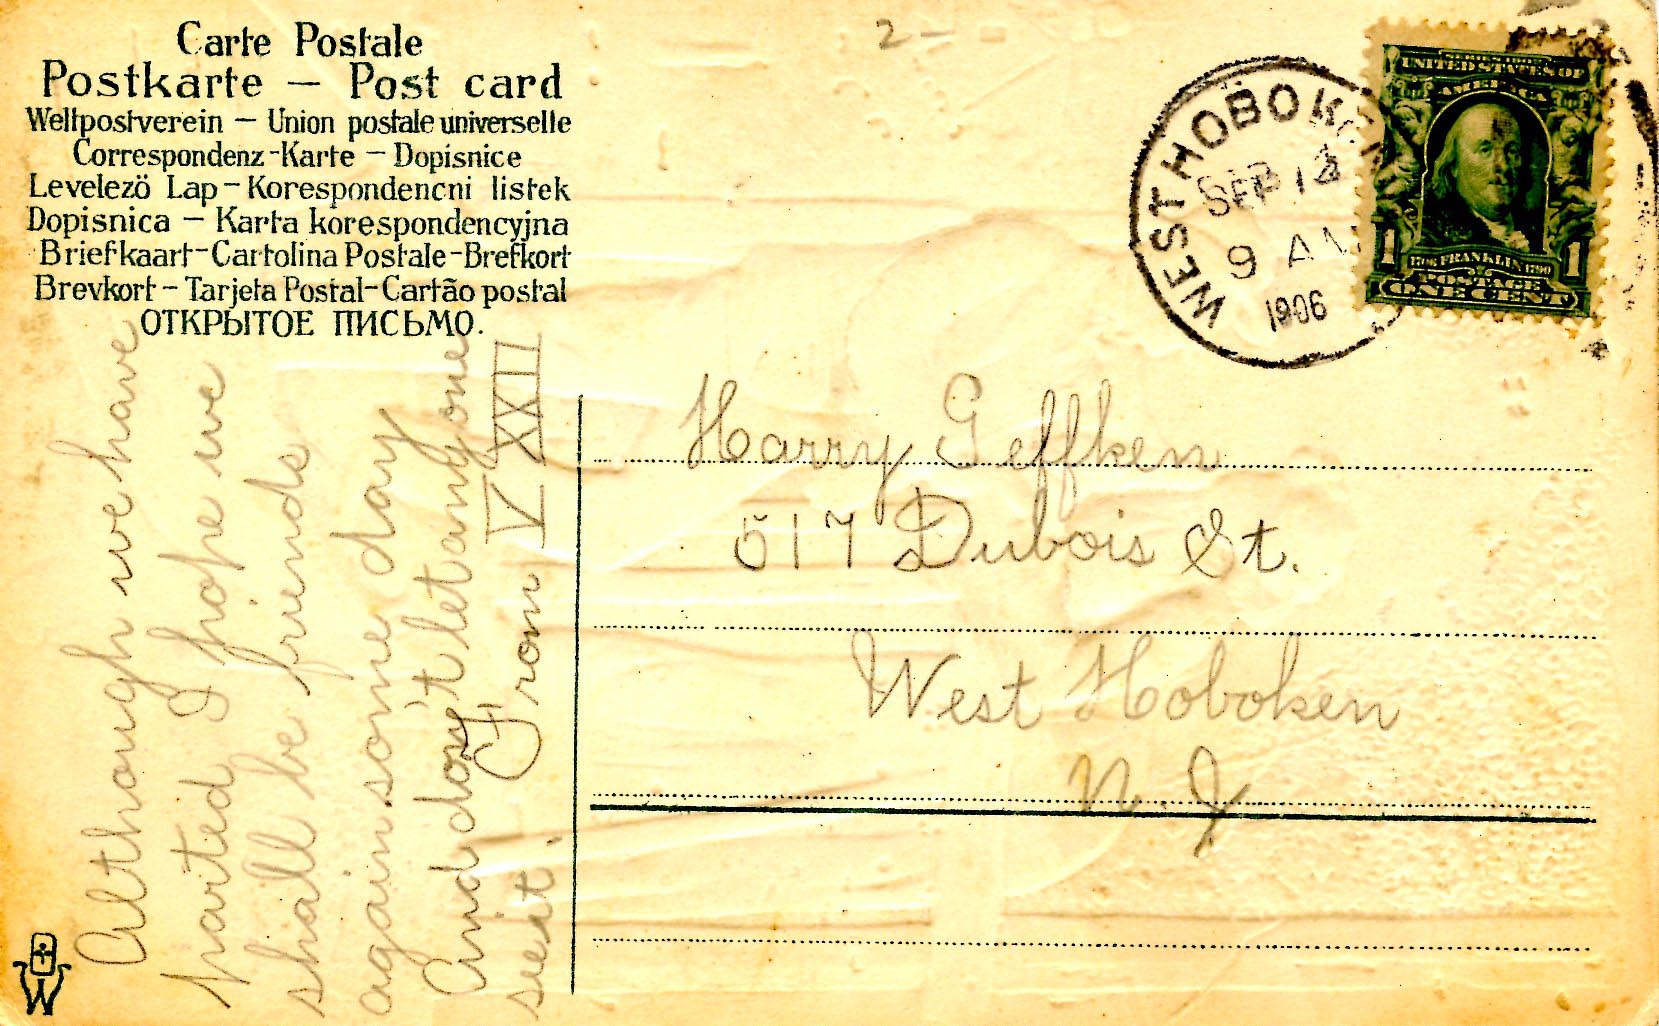 Carte Postale
Postkarte — Post card
Weltpostverein — Union postale universelle
Correspondenz-Karte — Dopisnice
Levelezö Lap — Korespondencni listek
Dopisnica — Karta korespondencyjna
Briefkaart-Cartolina Postale-Brefkort
Brevkort — Tarjeta Postal-Cartão postal
ОТКРЫТОЕ ПИСЬМО.
2 —
WEST HOBOKEN
SEP 12
9 AM
1906
UNITED STATES OF
AMERICA
1 FRANKLIN 1
POSTAGE
ONE CENT
Harry Geffken
517 Dubois St.
West Hoboken
N. J.
Although we have
parted I hope we
shall be friends
again some day
And don't let any one
see it. From V XXII
W